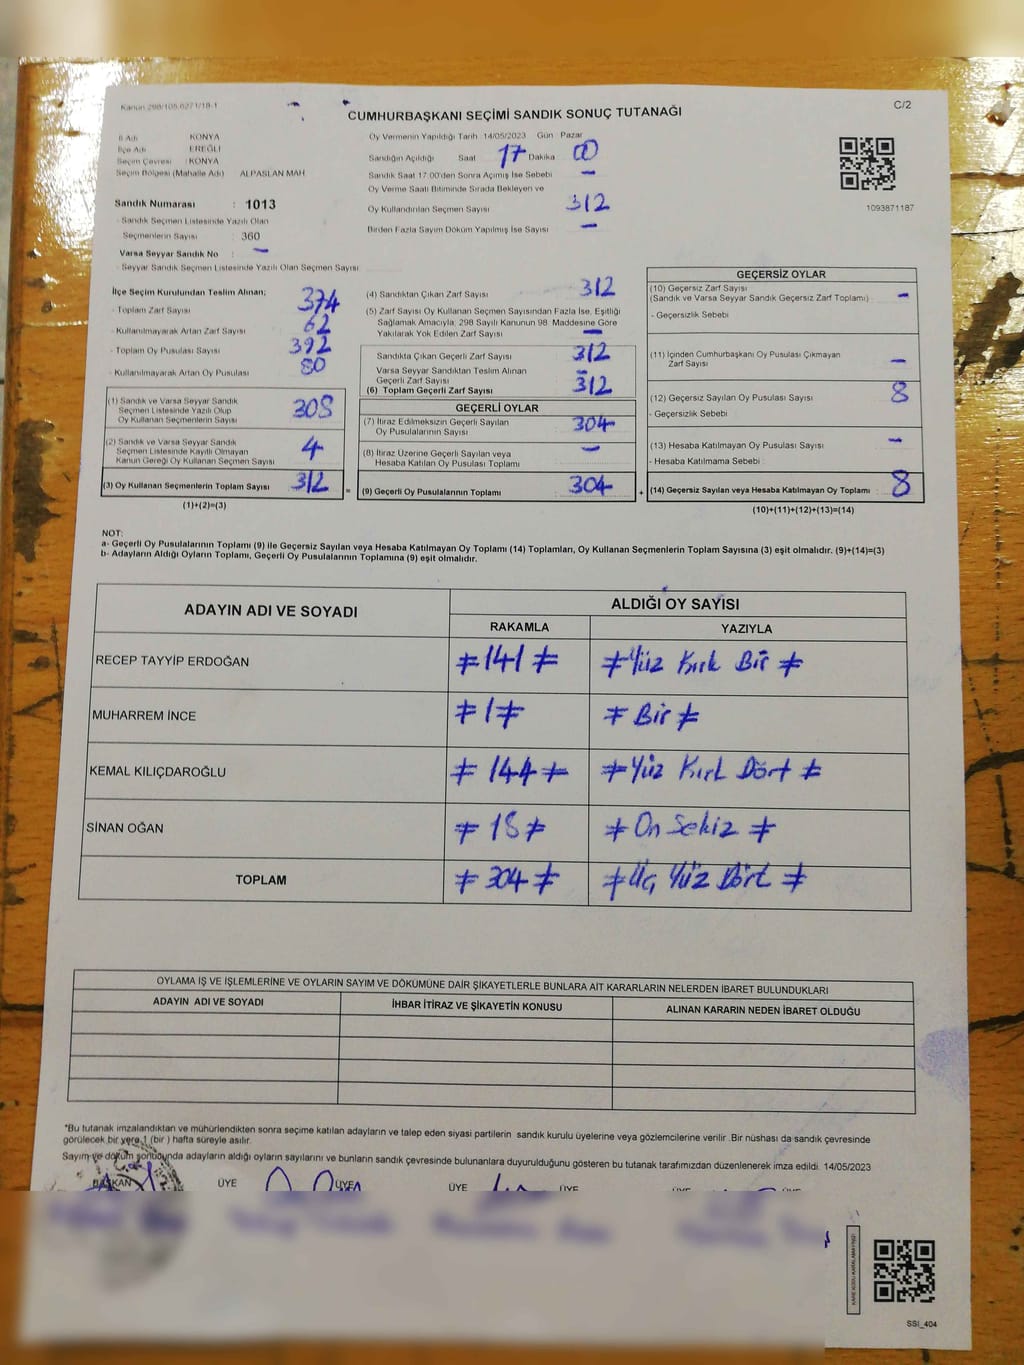 Kanun 298/105.0271/18-1
C/2
CUMHURBAŞKANI SEÇİMİ SANDIK SONUÇ TUTANAĞI
İl Adı KONYA
İlçe Adı EREĞLİ
Seçim Çevresi KONYA
Seçim Bölgesi (Mahalle Adı) ALPASLAN MAH
Sandık Numarası : 1013
- Sandık Seçmen Listesinde Yazılı Olan
Seçmenlerin Sayısı : 360
Varsa Seyyar Sandık No : —
- Seyyar Sandık Seçmen Listesinde Yazılı Olan Seçmen Sayısı
Oy Vermenin Yapıldığı Tarih 14/05/2023 Gün Pazar
Sandığın Açıldığı Saat 17 Dakika 00
Sandık Saat 17:00'den Sonra Açımış İse Sebebi —
Oy Verme Saati Bitiminde Sırada Bekleyen ve
Oy Kullandırılan Seçmen Sayısı 312
Birden Fazla Sayım Döküm Yapılmış İse Sayısı —
1093871187
İlçe Seçim Kurulundan Teslim Alınan;
- Toplam Zarf Sayısı 374
- Kullanılmayarak Artan Zarf Sayısı 62
- Toplam Oy Pusulası Sayısı 392
- Kullanılmayarak Artan Oy Pusulası 80
(1) Sandık ve Varsa Seyyar Sandık
Seçmen Listesinde Yazılı Olup
Oy Kullanan Seçmenlerin Sayısı 308
(2) Sandık ve Varsa Seyyar Sandık
Seçmen Listesinde Kayıtlı Olmayan
Kanun Gereği Oy Kullanan Seçmen Sayısı 4
(3) Oy Kullanan Seçmenlerin Toplam Sayısı 312 =
(1)+(2)=(3)
(4) Sandıktan Çıkan Zarf Sayısı 312
(5) Zarf Sayısı Oy Kullanan Seçmen Sayısından Fazla İse, Eşitliği
Sağlamak Amacıyla; 298 Sayılı Kanunun 98. Maddesine Göre
Yakılarak Yok Edilen Zarf Sayısı —
Sandıkta Çıkan Geçerli Zarf Sayısı 312
Varsa Seyyar Sandıktan Teslim Alınan
Geçerli Zarf Sayısı —
(6) Toplam Geçerli Zarf Sayısı 312
GEÇERLİ OYLAR
(7) İtiraz Edilmeksizin Geçerli Sayılan
Oy Pusulalarının Sayısı 304
(8) İtiraz Üzerine Geçerli Sayılan veya
Hesaba Katılan Oy Pusulası Toplamı —
(9) Geçerli Oy Pusulalarının Toplamı 304 +
GEÇERSİZ OYLAR
(10) Geçersiz Zarf Sayısı
(Sandık ve Varsa Seyyar Sandık Geçersiz Zarf Toplamı) —
- Geçersizlik Sebebi
(11) İçinden Cumhurbaşkanı Oy Pusulası Çıkmayan
Zarf Sayısı —
(12) Geçersiz Sayılan Oy Pusulası Sayısı 8
- Geçersizlik Sebebi
(13) Hesaba Katılmayan Oy Pusulası Sayısı —
- Hesaba Katılmama Sebebi :
(14) Geçersiz Sayılan veya Hesaba Katılmayan Oy Toplamı 8
(10)+(11)+(12)+(13)=(14)
NOT:
a- Geçerli Oy Pusulalarının Toplamı (9) ile Geçersiz Sayılan veya Hesaba Katılmayan Oy Toplamı (14) Toplamları, Oy Kullanan Seçmenlerin Toplam Sayısına (3) eşit olmalıdır. (9)+(14)=(3)
b- Adayların Aldığı Oyların Toplamı, Geçerli Oy Pusulalarının Toplamına (9) eşit olmalıdır.
ADAYIN ADI VE SOYADI ALDIĞI OY SAYISI
RAKAMLA YAZIYLA
RECEP TAYYİP ERDOĞAN ≠ 141 ≠ ≠ Yüz Kırk Bir ≠
MUHARREM İNCE ≠ 1 ≠ ≠ Bir ≠
KEMAL KILIÇDAROĞLU ≠ 144 ≠ ≠ Yüz Kırk Dört ≠
SİNAN OĞAN ≠ 18 ≠ ≠ On Sekiz ≠
TOPLAM ≠ 304 ≠ ≠ Üç Yüz Dört ≠
OYLAMA İŞ VE İŞLEMLERİNE VE OYLARIN SAYIM VE DÖKÜMÜNE DAİR ŞİKAYETLERLE BUNLARA AİT KARARLARIN NELERDEN İBARET BULUNDUKLARI
ADAYIN ADI VE SOYADI İHBAR İTİRAZ VE ŞİKAYETİN KONUSU ALINAN KARARIN NEDEN İBARET OLDUĞU
*Bu tutanak imzalandıktan ve mühürlendikten sonra seçime katılan adayların ve talep eden siyasi partilerin sandık kurulu üyelerine veya gözlemcilerine verilir .Bir nüshası da sandık çevresinde
görülecek bir yere 1 (bir ) hafta süreyle asılır.
Sayım ve döküm sonucunda adayların aldığı oyların sayılarını ve bunların sandık çevresinde bulunanlara duyurulduğunu gösteren bu tutanak tarafımızdan düzenlenerek imza edildi. 14/05/2023
BAŞKAN ÜYE ÜYE ÜYE ÜYE ÜYE ÜYE
SSI_404